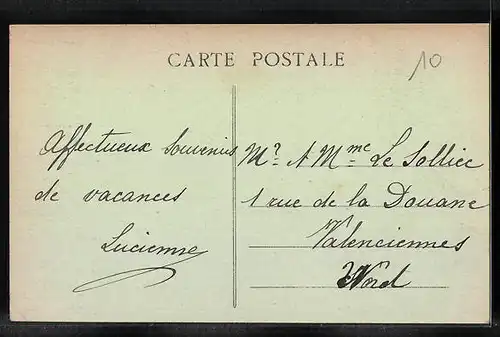 CARTE POSTALE
10
Affectueux Souvenirs
de vacances
Lucienne
Mr & Mme Le Solliec
1 rue de la Douane
Valenciennes
Nord